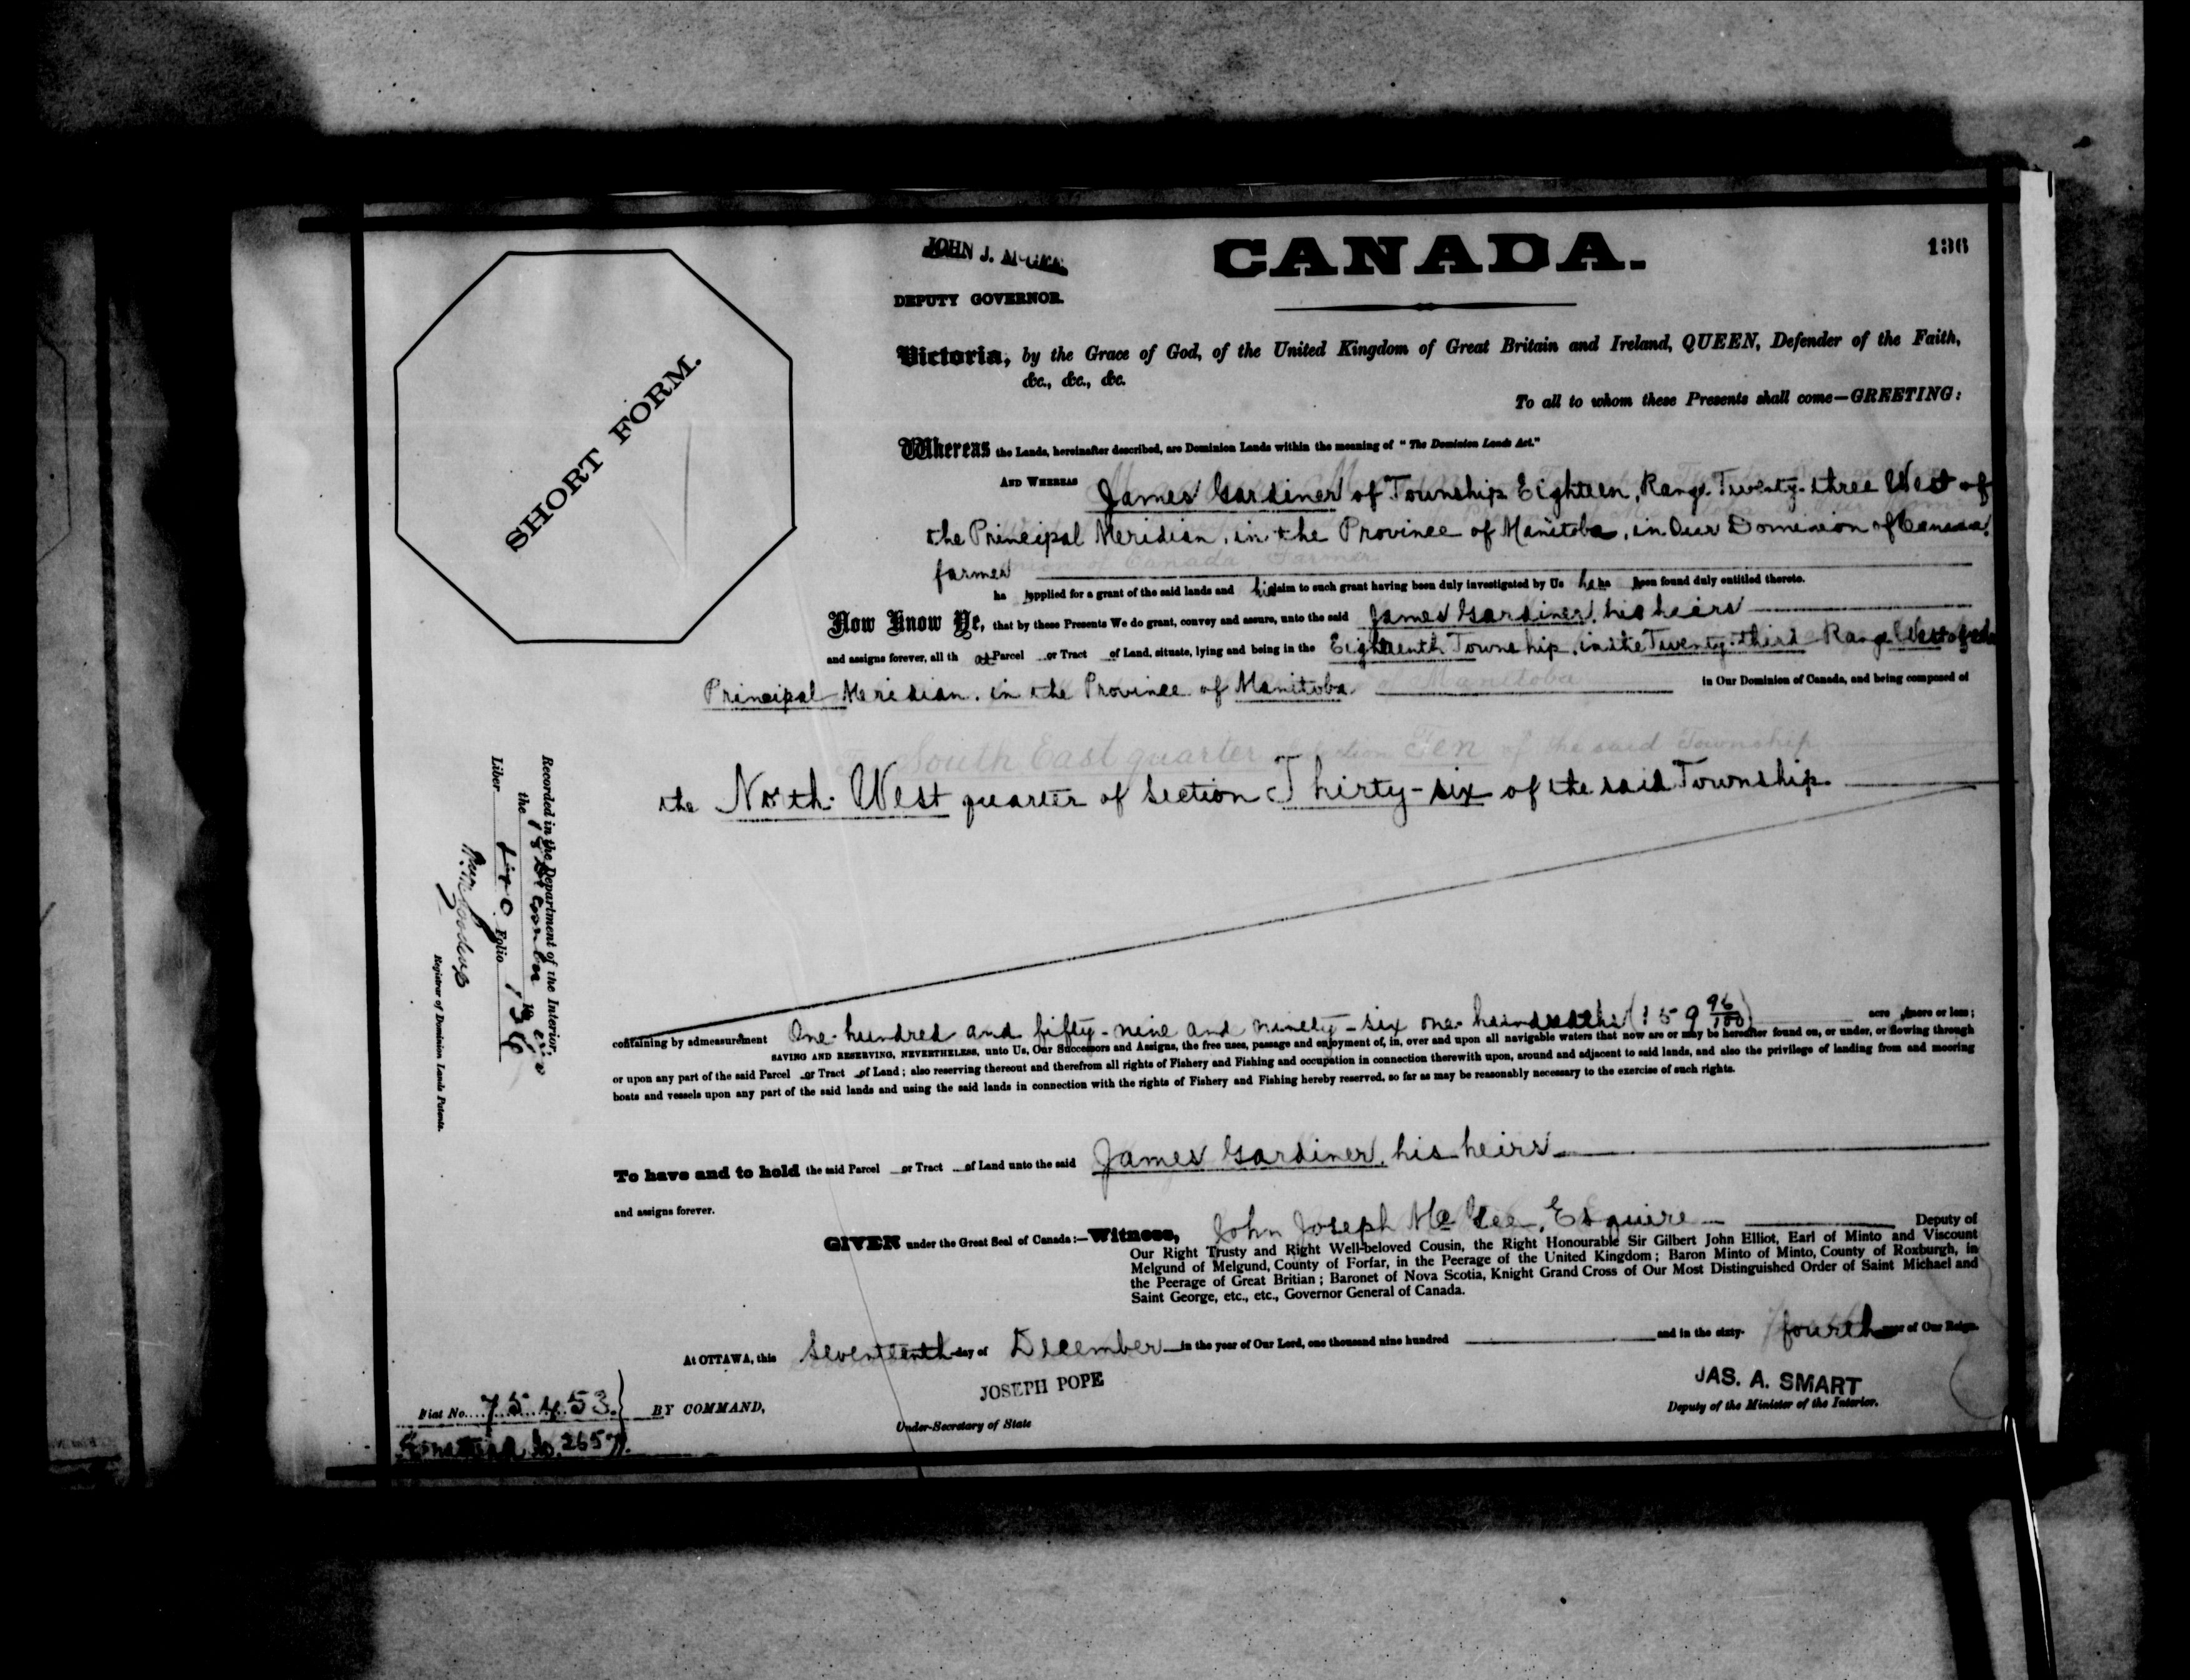 JOHN J. McGEE
DEPUTY GOVERNOR.
CANADA.
136
SHORT FORM.
Victoria, by the Grace of God, of the United Kingdom of Great Britain and Ireland, QUEEN, Defender of the Faith,
&c., &c., &c.
To all to whom these Presents shall come—GREETING:
Whereas the Lands, hereinafter described, are Dominion Lands within the meaning of "The Dominion Lands Act."
AND WHEREAS James Gardiner of Township Eighteen, Range Twenty-three West of
the Principal Meridian, in the Province of Manitoba, in Our Dominion of Canada,
farmer
ha applied for a grant of the said lands and his claim to such grant having been duly investigated by Us he ha been found duly entitled thereto.
Now Know Ye, that by these Presents We do grant, convey and assure, unto the said James Gardiner, his heirs
and assigns forever, all th at Parcel or Tract of Land, situate, lying and being in the Eighteenth Township, in the Twenty-third Range West of the
Principal Meridian, in the Province of Manitoba in Our Dominion of Canada, and being composed of
South East quarter Ten of the said Township
the North West quarter of Section Thirty-six of the said Township
containing by admeasurement One hundred and fifty-nine and ninety-six one-hundredths (159 96/100) acre more or less;
SAVING AND RESERVING, NEVERTHELESS, unto Us, Our Successors and Assigns, the free uses, passage and enjoyment of, in, over and upon all navigable waters that now are or may be hereafter found on, or under, or flowing through
or upon any part of the said Parcel or Tract of Land; also reserving thereout and therefrom all rights of Fishery and Fishing and occupation in connection therewith upon, around and adjacent to said lands, and also the privilege of landing from and mooring
boats and vessels upon any part of the said lands and using the said lands in connection with the rights of Fishery and Fishing hereby reserved, so far as may be reasonably necessary to the exercise of such rights.
To have and to hold the said Parcel or Tract of Land unto the said James Gardiner, his heirs
and assigns forever.
GIVEN under the Great Seal of Canada:—Witness, John Joseph McGee, Esquire Deputy of
Our Right Trusty and Right Well-beloved Cousin, the Right Honourable Sir Gilbert John Elliot, Earl of Minto and Viscount
Melgund of Melgund, County of Forfar, in the Peerage of the United Kingdom; Baron Minto of Minto, County of Roxburgh, in
the Peerage of Great Britian; Baronet of Nova Scotia, Knight Grand Cross of Our Most Distinguished Order of Saint Michael and
Saint George, etc., etc., Governor General of Canada.
At OTTAWA, this Seventeenth day of December in the year of Our Lord, one thousand nine hundred and in the sixty- fourth year of Our Reign.
JOSEPH POPE
JAS. A. SMART
BY COMMAND,
Under-Secretary of State
Deputy of the Minister of the Interior.
Fiat No. 75453.
2657
Recorded in the Department of the Interior,
the 18 December
Liber Folio 136
Registrar of Dominion Lands Patents.